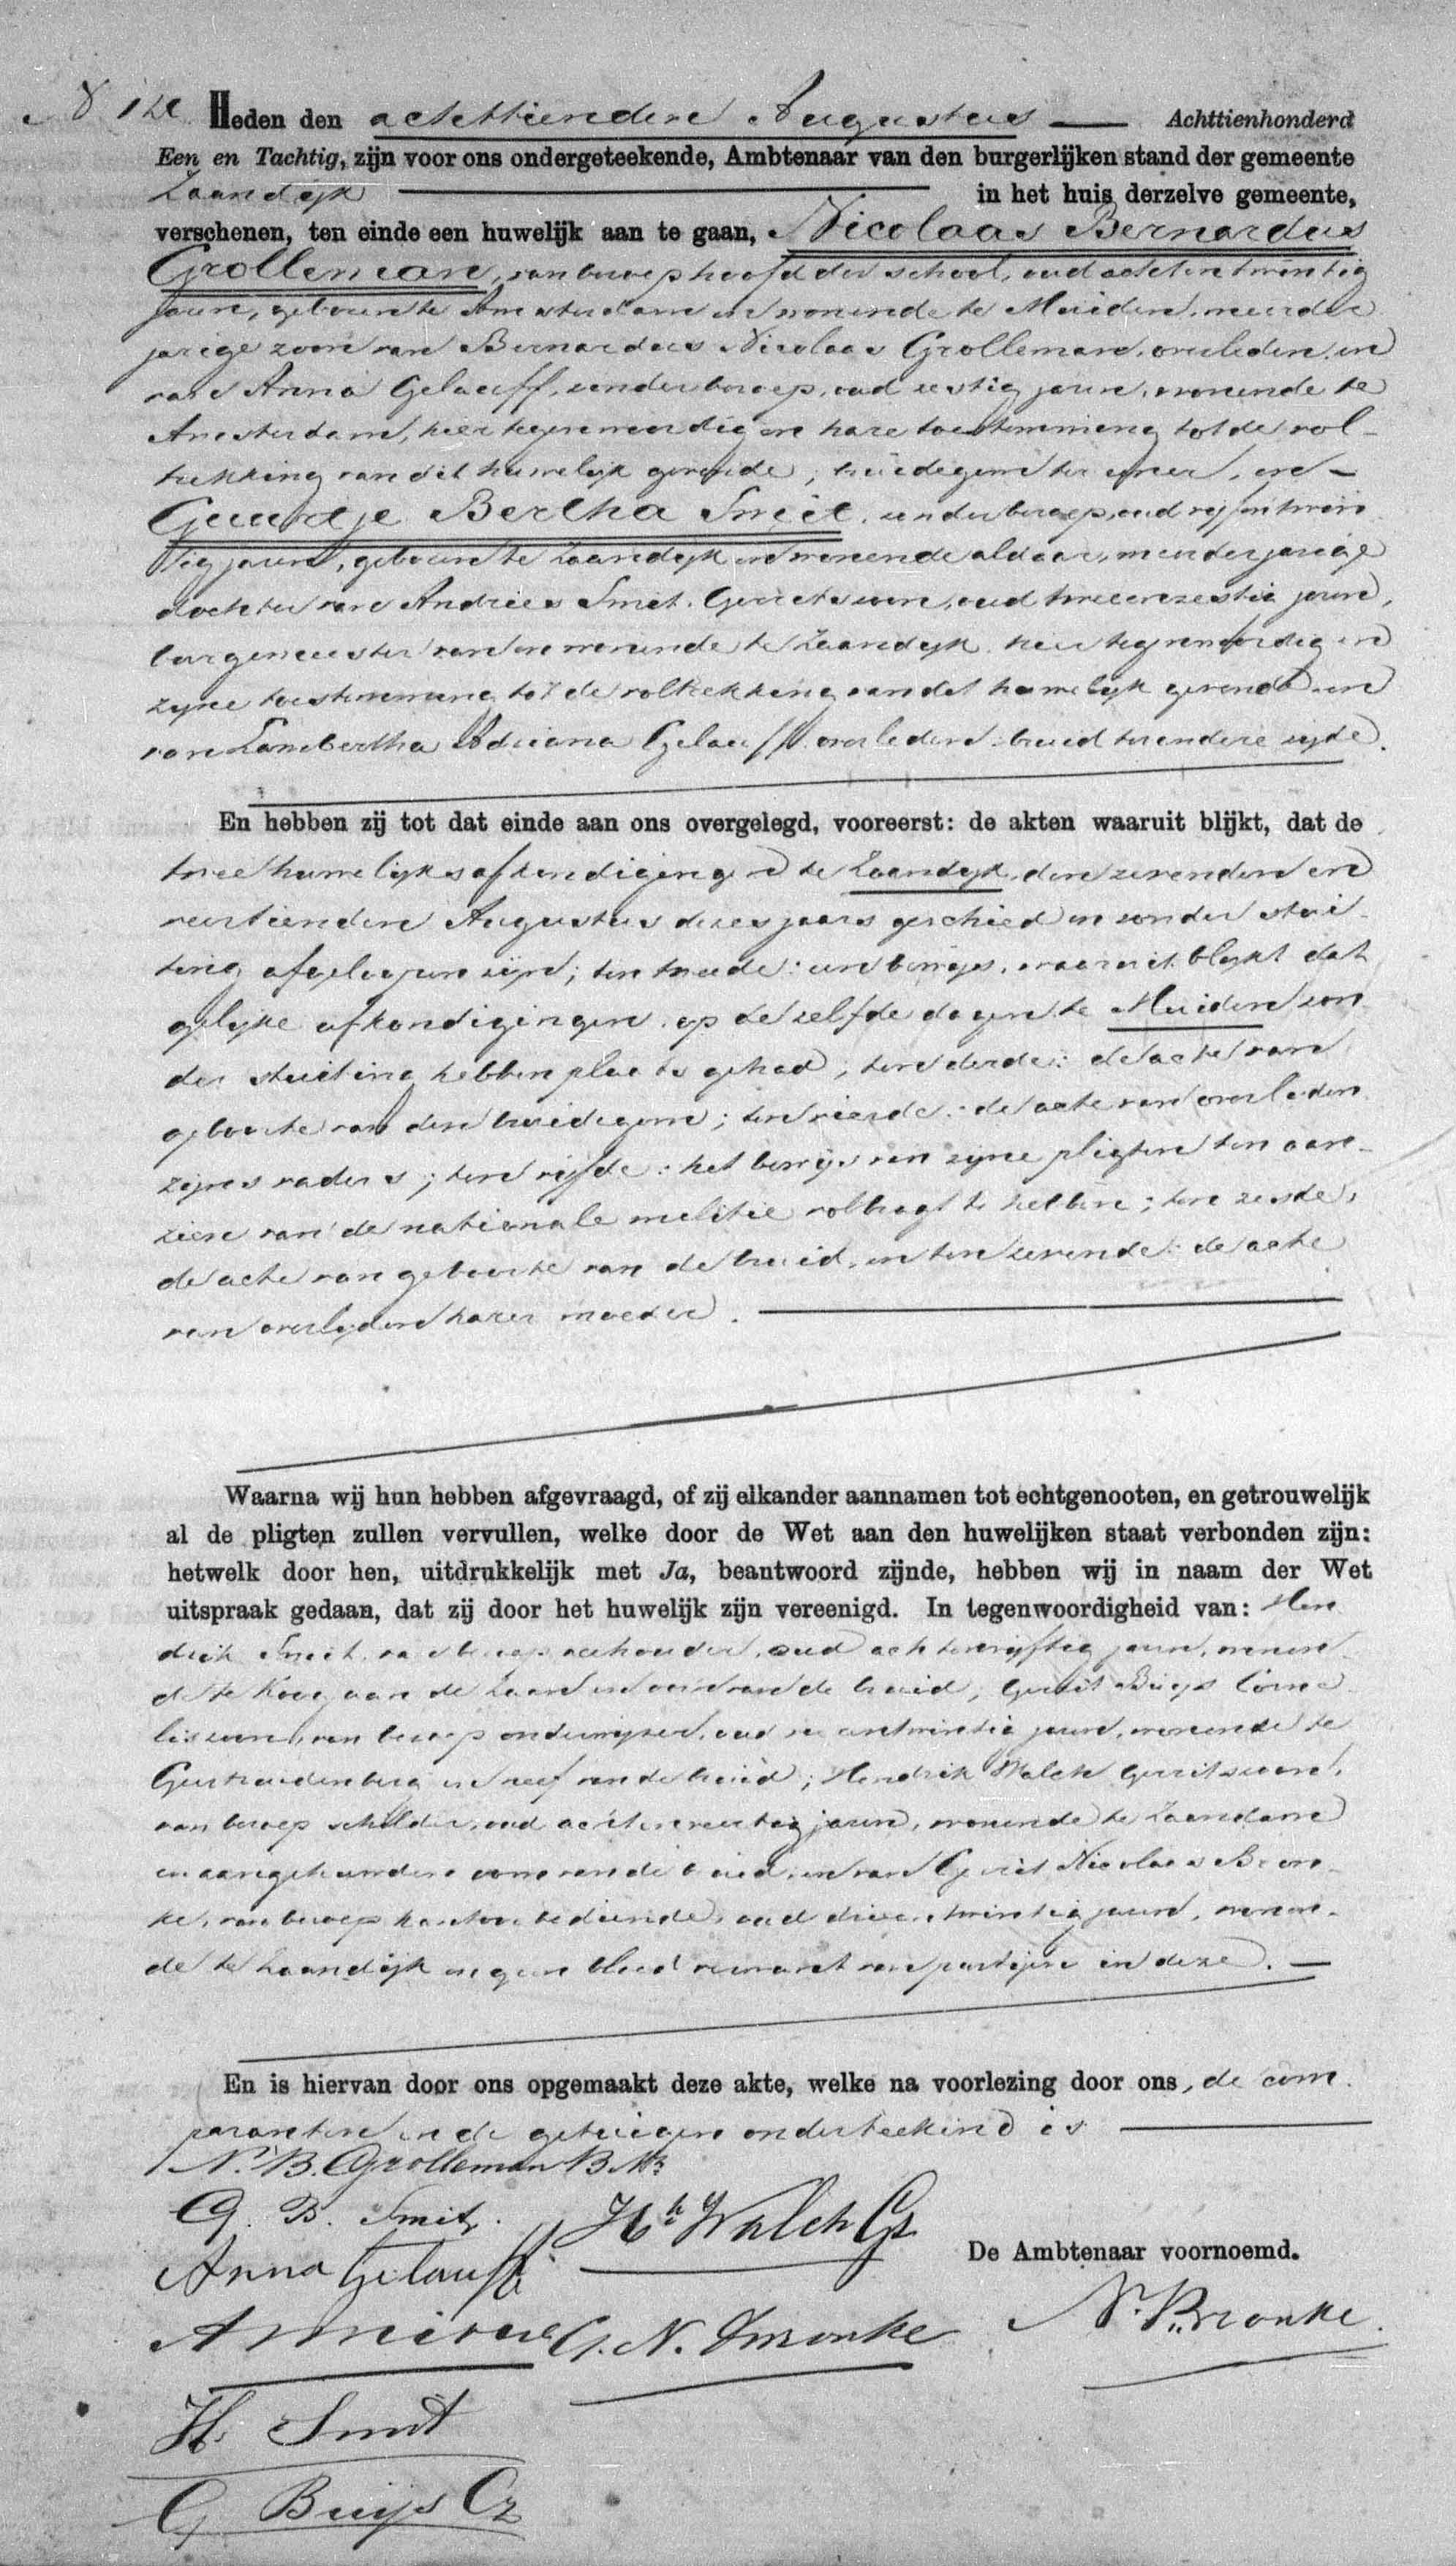 Heden den achttienden Augustus Achttienhonderd
Een en Tachtig, zijn voor ons ondergeteekende, Ambtenaar van den burgerlijken stand der gemeente
Zaandijk in het huis derzelve gemeente,
verschenen, ten einde een huwelijk aan te gaan, Nicolaas Bernardus
Grolleman, van beroep hoofd der school, oud achtentwintig
jaren, geboren te Amsterdam en wonende te Muiden, meerder
jarige zoon van Bernardus Nicolaas Grolleman, overleden, en
van Anna Gelauff, zonder beroep, oud zestig jaren, wonende te
Amsterdam, hier tegenwoordig en hare toestemming tot de vol-
trekking van dit huwelijk gevende, bruidegom ter eener, en
Guurtje Bertha Smit, zonder beroep, oud vijfentwin
tig jaren, geboren te Zaandijk en wonende aldaar, meerderjarige
dochter van Andries Smit Gerritszoon, oud tweeenzestig jaren,
burgemeester van en wonende te Zaandijk hier tegenwoordig en
zijne toestemming tot de voltrekking van dit huwelijk gevende en
van Lambertha Adriana Gelauff overleden bruid ter andere zijde.
En hebben zij tot dat einde aan ons overgelegd, vooreerst: de akten waaruit blijkt, dat de
twee huwelijksafkondigingen te Zaandijk den zevenden en
veertienden Augustus dezes jaars geschied en zonder stui-
ting afgeloopen zijn; ten tweede: een bewijs, waaruit blijkt dat
gelijke afkondigingen op dezelfde dagen te Muiden zon
der stuiting hebben plaats gehad; ten derde: de acte van
geboorte van den bruidegom; ten vierde: de acte van overleden
zijns vaders; ten vijfde: het bewijs van zijne pligten ten aan-
zien van de nationale melitie volbragt te hebben; ten zesde:
de acte van geboorte van de bruid, en ten zevende: de acte
van overlijden harer moeder.
Waarna wij hun hebben afgevraagd, of zij elkander aannamen tot echtgenooten, en getrouwelijk
al de pligten zullen vervullen, welke door de Wet aan den huwelijken staat verbonden zijn:
hetwelk door hen, uitdrukkelijk met Ja, beantwoord zijnde, hebben wij in naam der Wet
uitspraak gedaan, dat zij door het huwelijk zijn vereenigd. In tegenwoordigheid van: Hen
drik Smit, van beroep oud achtenvijftig jaren, wonen
de te Koog aan de Zaan en oom van de bruid; Gerrit Buijs Corne
liszoon, van beroep onderwijzer, oud jaren, wonende te
Geertruidenberg en neef van de bruid; Hendrik Walch Gerritszoon,
van beroep schilder, oud achtenveertig jaren, wonende te Zaandam
en aangehuwden oom van de bruid, en van Gerrit Nicolaas Bron-
ke, van beroep kantoorbediende, oud drieentwintig jaren, wonen-
de te Zaandijk en geen bloedverwant van partijen in deze.
En is hiervan door ons opgemaakt deze akte, welke na voorlezing door ons, de com
paranten en de getuigen onderteekend is
N. B. Grolleman
G. B. Smit.
Hk Walch Gz
Anna Gelauff
De Ambtenaar voornoemd.
G. N. Bronke
N. Bronke.
H. Smit
G Buijs Cz